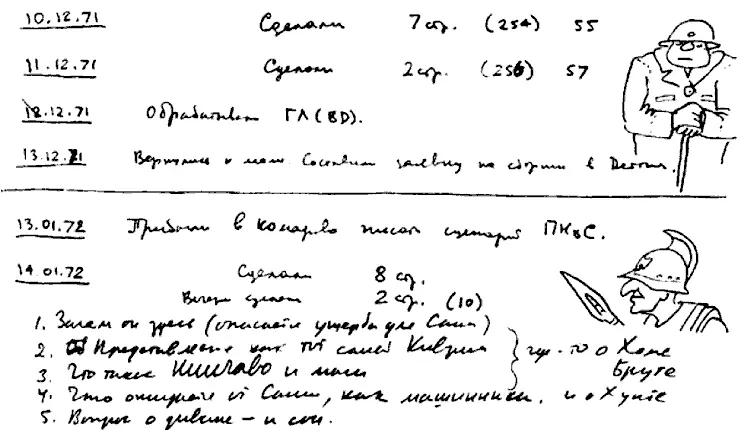 10.12.71 Сделали 7 стр. (254) 55
11.12.71 Сделали 2 стр. (256) 57
12.12.71 Обрабатывали ГЛ(ВD).
13.12.71 Вернулись к маме. Составили заявку на сборник в Детгиз.
13.01.72 Прибыли в Комарово писать сценарий ПНвС.
14.01.72 Сделали 8 стр.
Вечером сделали 2 стр. (10)
1. Зачем он здесь (опасается ущерба для Саши)
2. Представление как тот самый Киврин
3. Что такое НИИЧАВО и маги
где-то о Хоме Бруте
4. Что ожидали от Саши, как машинника. и о Хунте
5. Вопрос о диване – и сон.